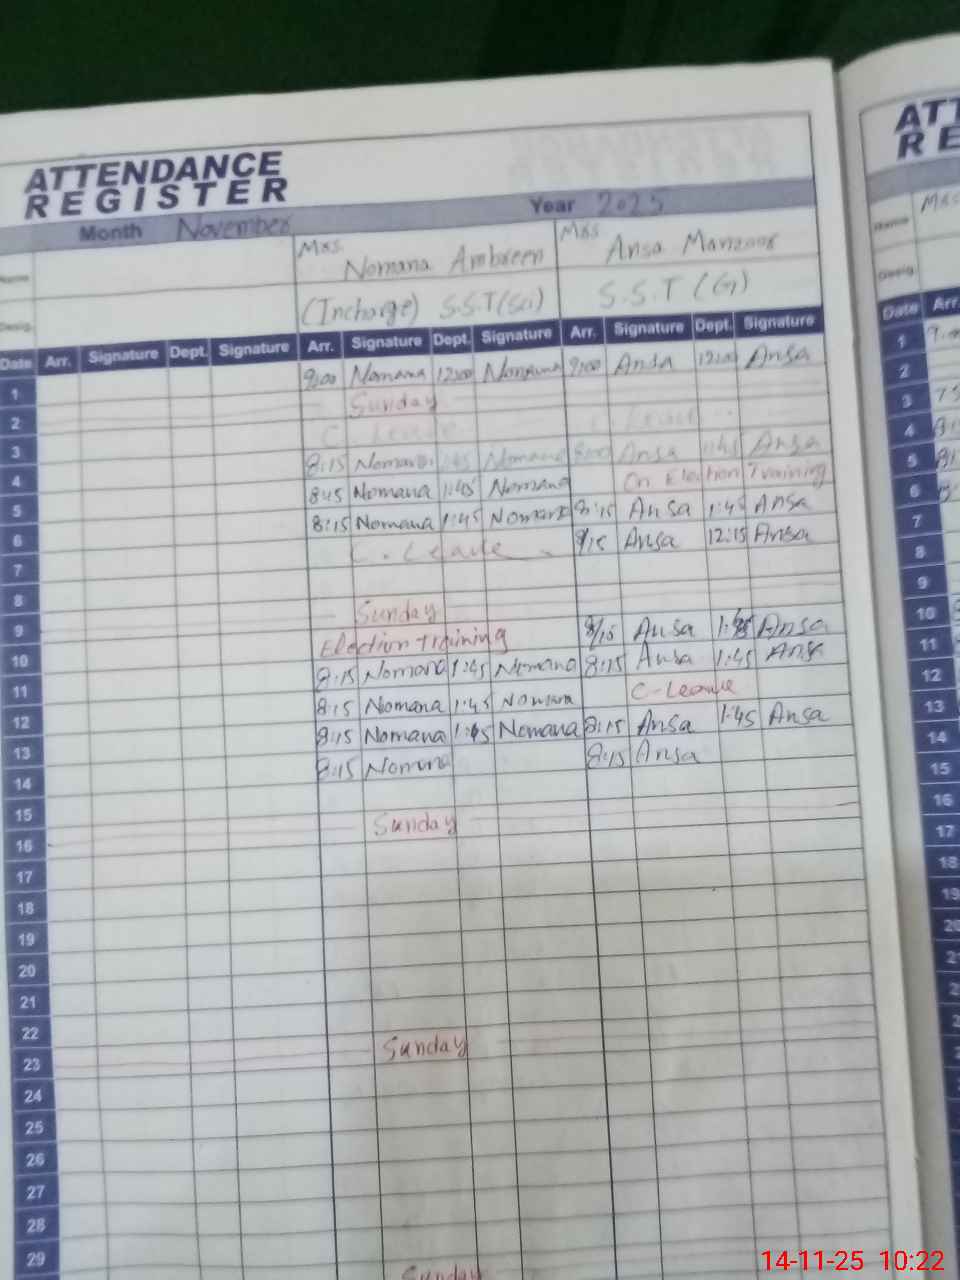 ATTENDANCE
REGISTER
Month November Year 2025
Name Mrs. Nomana Ambreen Mrs Ansa Manzoor
Desig. (Incharge) S.S.T (Sci) S.S.T (G)
Date Arr. Signature Dept. Signature Arr. Signature Dept. Signature Arr. Signature Dept. Signature
1 9:00 Nomana 12:00 Nomana 9:00 Ansa 12:00 Ansa
2 Sunday
3 C. Leave C. Leave
4 8:15 Nomana 1:45 Nomana Ansa 1:45 Ansa
5 8:45 Nomana 1:45 Nomana On Election Training
6 8:15 Nomana 1:45 Nomana 8:15 Ansa 1:45 Ansa
7 C. Leave 8/15 Ansa 12:15 Ansa
8
9 Sunday
10 Election Training 8/15 Ansa Ansa
11 8:15 Nomana 1:45 Nomana 8:15 Ansa 1:45 Ansa
12 8:15 Nomana 1:45 Nomana C-Leave
13 8:15 Nomana 1:45 Nomana 8:15 Ansa 1:45 Ansa
14 8:15 Nomana 8:15 Ansa
15
16 Sunday
17
18
19
20
21
22
23 Sunday
24
25
26
27
28
29
Sunday
ATT
RE
Name Mrs
Desig.
Date Arr.
1
2
3
4
5
6
7
8
9
10
11
12
13
14
15
16
17
18
19
20
14-11-25 10:22